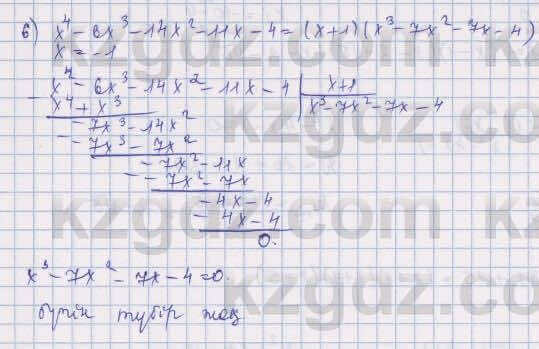 б) x⁴ - 6x³ - 14x² - 11x - 4 = (x+1)(x³ - 7x² - 7x - 4)
x = -1
x⁴ - 6x³ - 14x² - 11x - 4 | x+1
- x⁴ + x³ | x³ - 7x² - 7x - 4
- 7x³ - 14x²
- - 7x³ - 7x²
- 7x² - 11x
- - 7x² - 7x
- 4x - 4
- 4x - 4
0.
x³ - 7x² - 7x - 4 = 0.
бүтін түбір жоқ
kzgdz.com